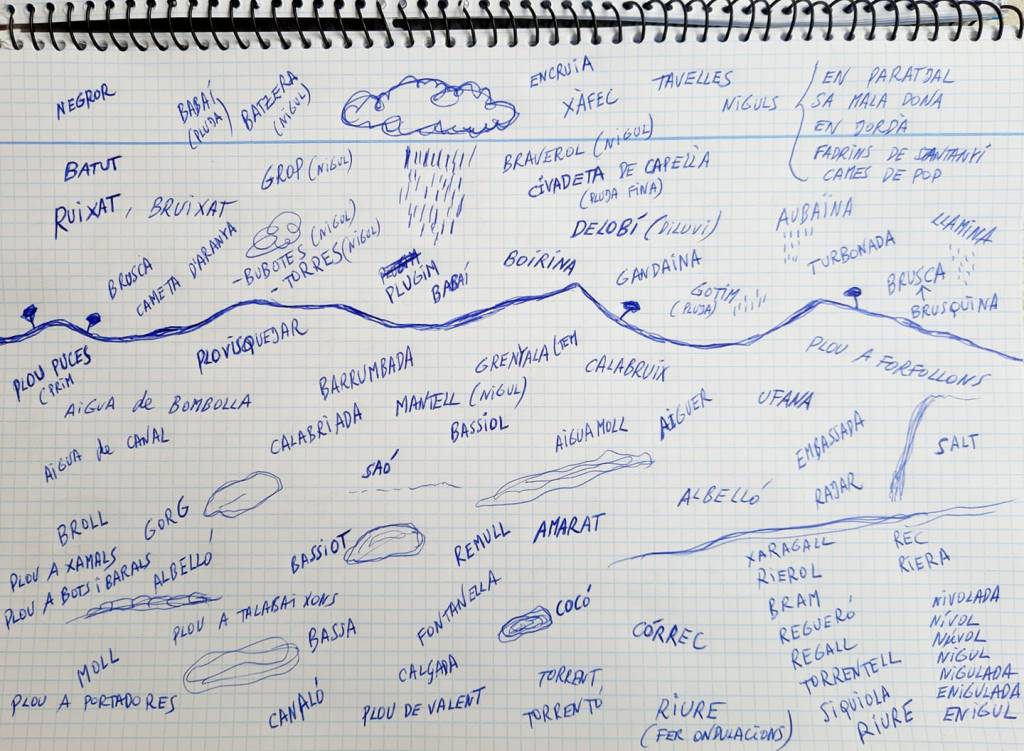 NEGROR
BABAÍ
(PLUJA)
BATZERA
(NIGUL)
ENCRUIA
XÀFEC
TAVELLES
NIGULS
EN PARATJAL
SA MALA DONA
EN JORDÀ
FADRINS DE SANTANYÍ
CAMES DE POP
BATUT
GROP (NIGUL)
BRAVEROL (NIGUL)
CIVADETA DE CAPELLÀ
(PLUJA FINA)
RUIXAT, BRUIXAT
DELOBÍ (DILUVI)
AUBAÏNA
LLAMINA
BRUSCA
CAMETA D'ARANYA
- BUBOTES (NIGUL)
- TORRES (NIGUL)
PLUGIM
BABAÍ
BOIRINA
GANDAINA
GOTIM
(PLUJA)
TURBONADA
BRUSCA
BRUSQUINA
PLOU PUCES
(PRIM
PLOVISQUEJAR
BARRUMBADA
GRENYALA
CALABRUIX
PLOU A FORFOLLONS
AIGUA de BOMBOLLA
MANTELL (NIGUL)
BASSIOL
AIGUER
UFANA
AIGUA de CANAL
CALABRIADA
AIGUAMOLL
EMBASSADA
SALT
SAÓ
ALBELLÓ
RAJAR
BROLL
GORG
BASSIOT
REMULL
AMARAT
XARAGALL
REC
PLOU A XAMALS
PLOU A BOTS i BARALS
ALBELLÓ
RIEROL
RIERA
PLOU A TALABAIXONS
BASSA
FONTANELLA
COCÓ
CÓRREC
BRAM
REGUERÓ
REGALL
TORRENTELL
SIQUIOLA
RIURE
NIVOLADA
NÍVOL
NÚVOL
NIGUL
NIGULADA
ENIGULADA
ENIGUL
MOLL
CALÇADA
TORRENT
PLOU A PORTADORES
CANALÓ
PLOU DE VALENT
TORRENTÓ
RIURE
(FER ONDULACIONS)